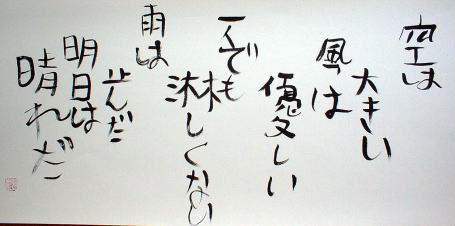 空は
大きい
風は
優しい
一人でも
淋しくない
雨は
止んだ
明日は
晴れだ